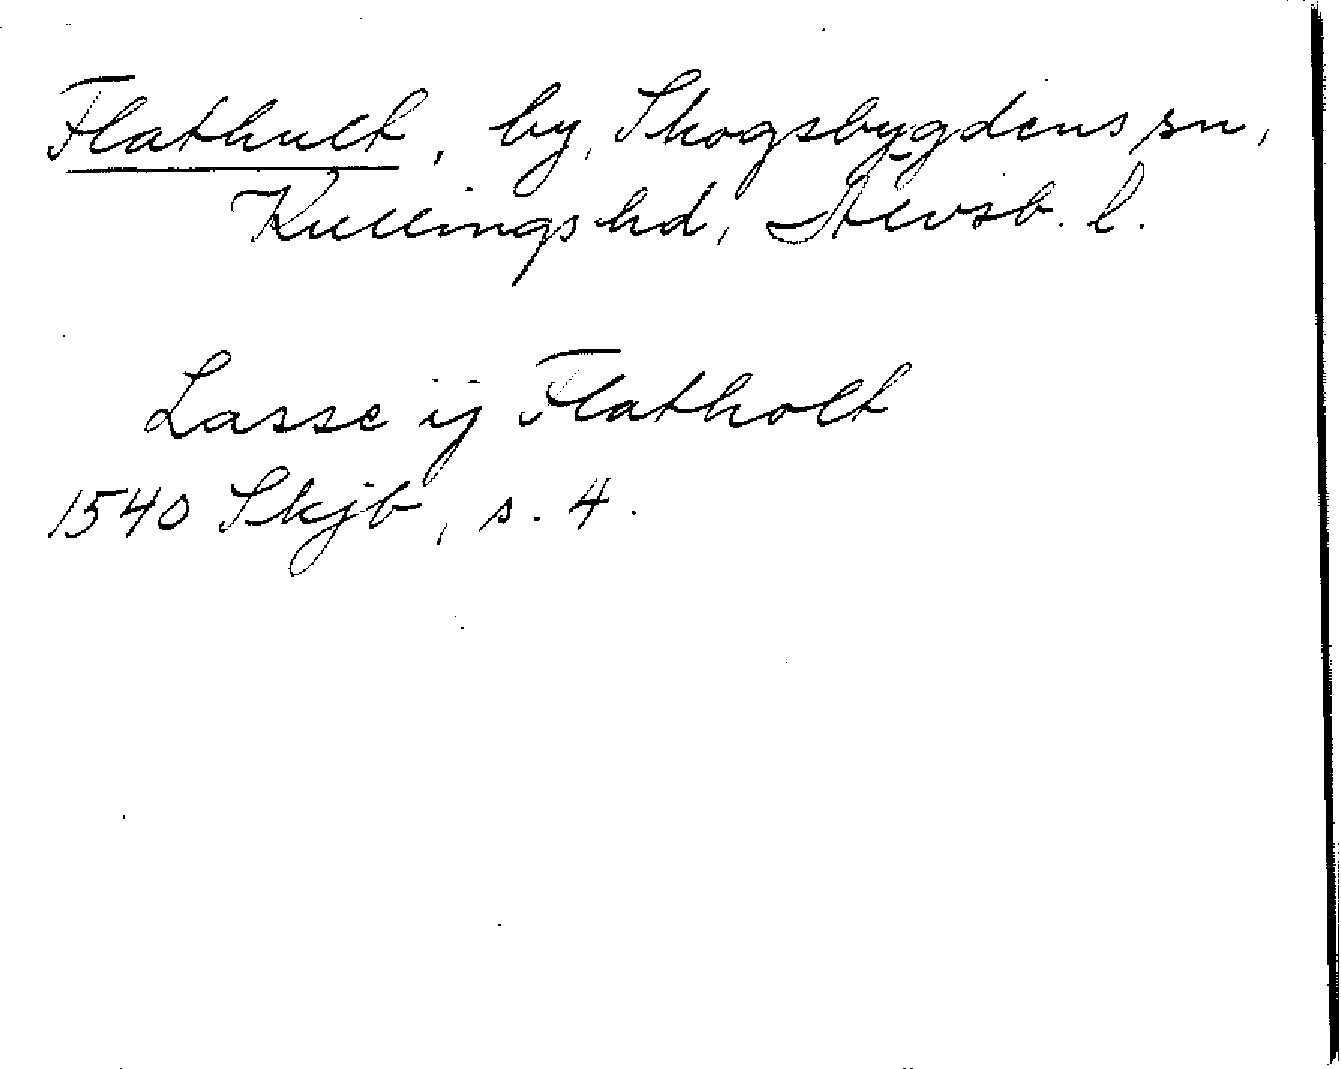 Flathult, by, Skogsbygdens sn,
Kullings hd, Älvsb. l.
Lasse ij Flatholt
1540 Skjb, s. 4.